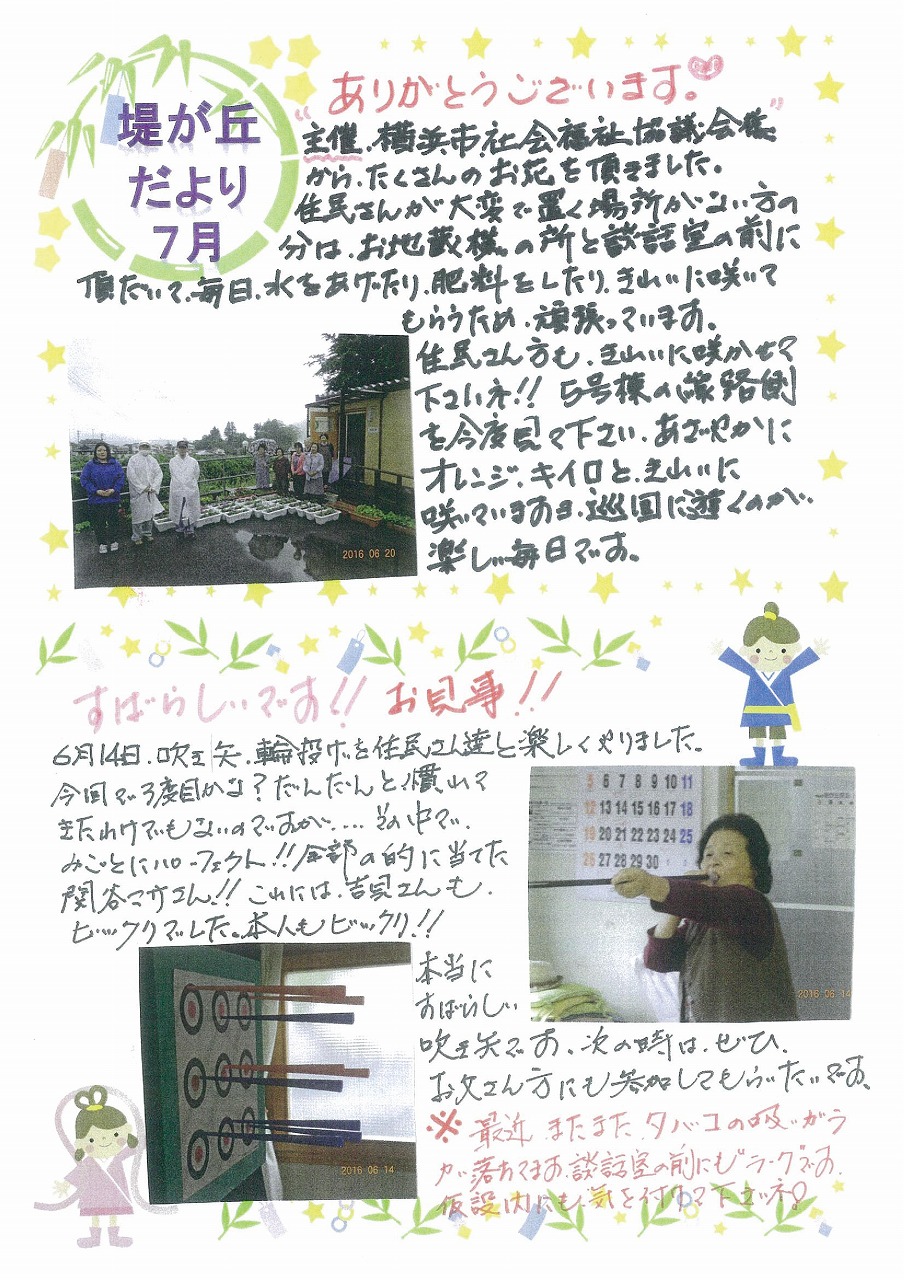 堤が丘
だより
7月
"ありがとうございます。"
主催、横浜市社会福祉協議会様
から、たくさんのお花を頂きました。
住民さんが大変で置く場所がない方の
分は、お地蔵様の所と談話室の前に
頂だいて、毎日、水をあげたり、肥料をしたり、きれいに咲いて
もらうため、頑張っています。
住民さん方も、きれいに咲かせて
下さいネ!! 5号棟の線路側
を今度見て下さい、あざやかに
オレンジ、キイロと、きれいに
咲いていますョ、巡回に逝くのが、
楽しい毎日です。
2016 06 20
すばらしいです!! お見事!!
6月14日、吹き矢、輪投げを住民さん達と楽しくやりました。
今回で3度目かな?だんだんと慣れて
きたわけでもないのですが....その中で、
みごとにパーフェクト!!全部の的に当てた
関谷マサさん!! これには、吉見さんも、
ビックリでした。本人もビックリ!!
5 6 7 8 9 10 11
12 13 14 15 16 17 18
19 20 21 22 23 24 25
26 27 28 29 30
2016 06 14
本当に
すばらしい
吹き矢です、次の時は、ぜひ、
お父さん方にも参加してもらいたいです、
2016 06 14
※ 最近、またまた、タバコの吸いがら
が落ちてます、談話室の前にも"ラークです、
仮設内にも、気を付けて下さいネ!